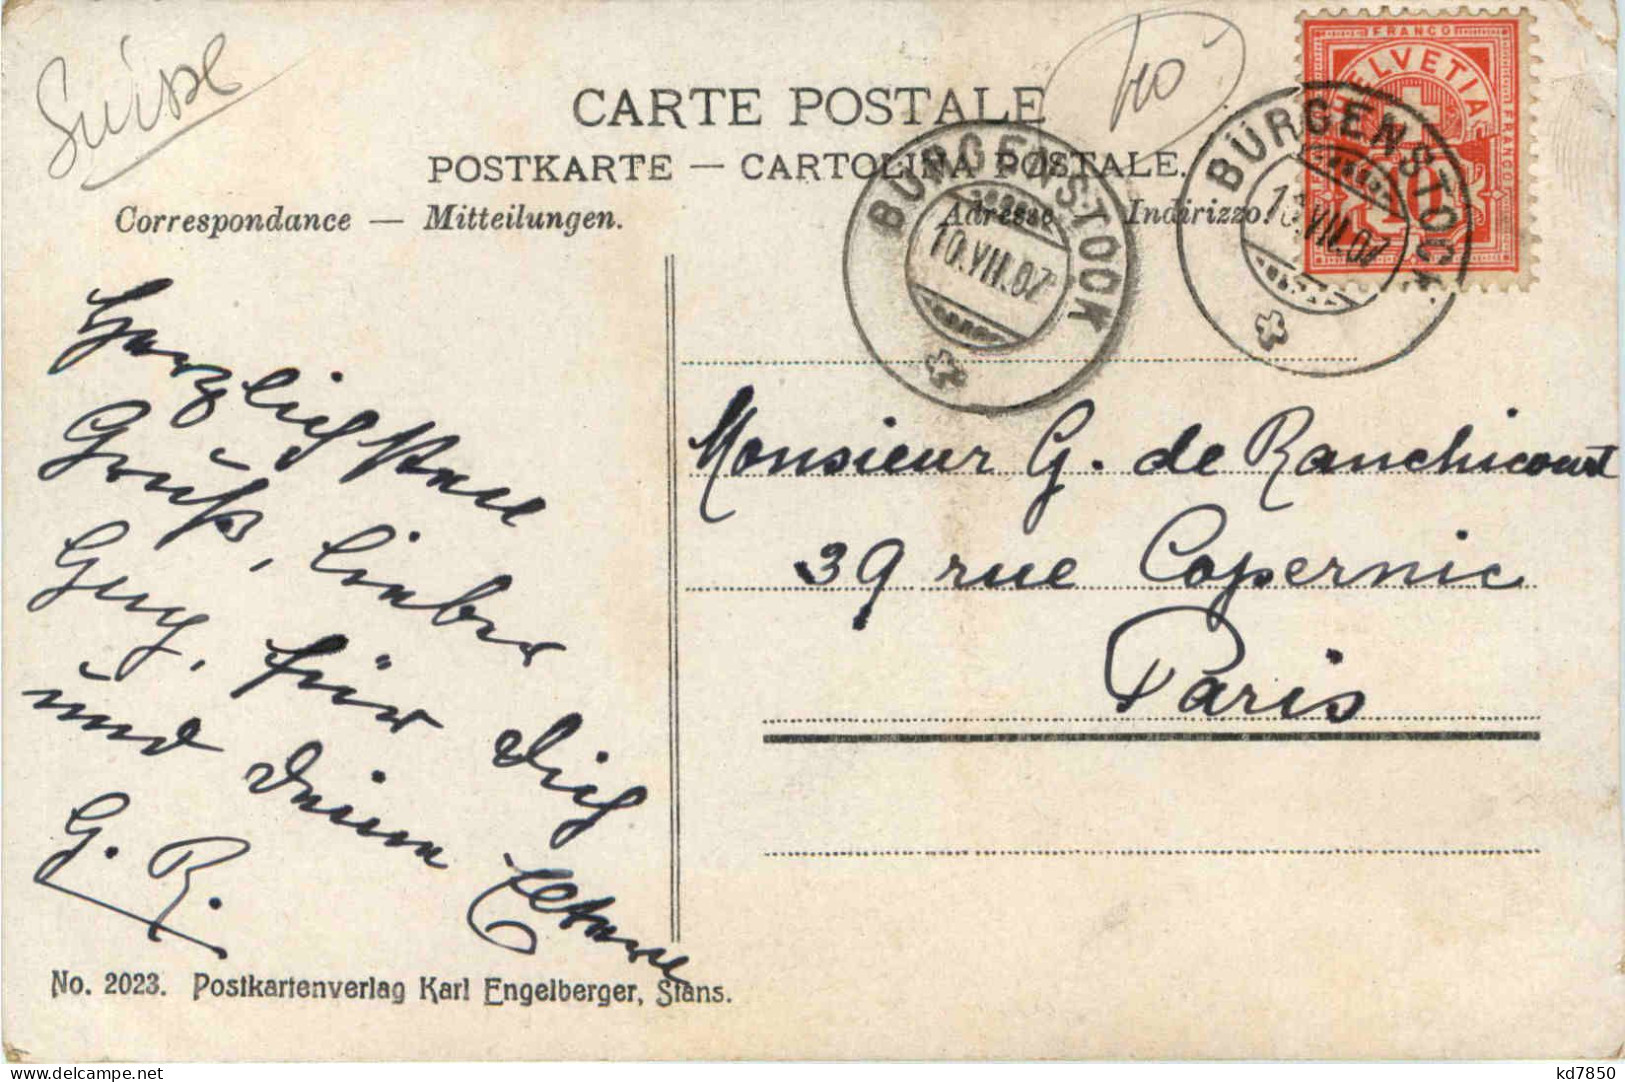 Suisse
40
CARTE POSTALE
POSTKARTE — CARTOLINA POSTALE.
Correspondance — Mitteilungen.
Adresse Indirizzo.
FRANCO
HELVETIA
FRANCO
10
BÜRGENSTOCK
10.VII.07
BÜRGENSTOCK
10.VII.07
Herzlichsten
Gruß, lieber
Guy, für Dich
und Deine Eltern
G. R.
Monsieur G. de Ranchicourt
39 rue Copernic
Paris
No. 2023. Postkartenverlag Karl Engelberger, Stans.
kd7850